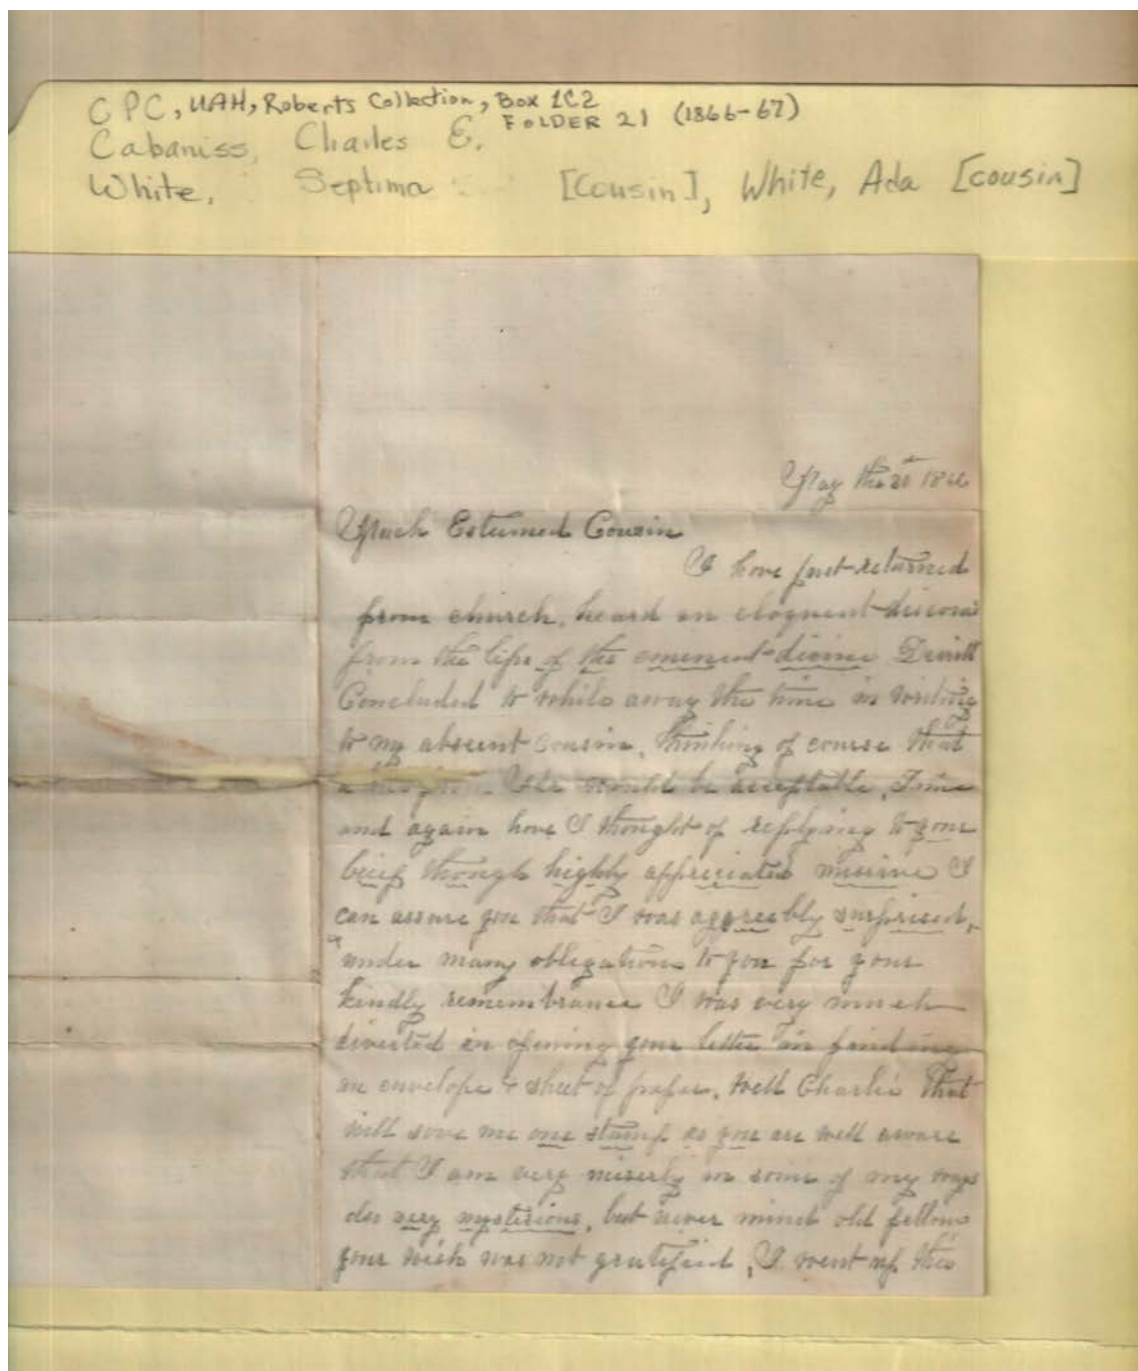 CPC, UAH, Roberts Collection, Box 1C2
FOLDER 21 (1866-67)
Cabaniss, Charles E.
White, Septima [Cousin], White, Ada [cousin]
May the 20th 1866
Much Esteemed Cousin
I have just returned
from church, heard an eloquent discours
from the lips of the emenent divine
Concluded to while away the time in writing
to my absent Cousin, thinking of course that
would be acceptable, Time
and again have I thought of replying to your
brief though highly appreciated missive I
can assure you that I was aggreebly surprised,
under many obligations to you for your
kindly remembrance I was very much
diverted in opening your letter in finding
an envelope & sheet of paper, well Charlie that
will save me one stamp as you are well aware
that I am very miserly in some of my ways
also very mysterious, but never mind old fellow
your wish was not gratified, I went up the